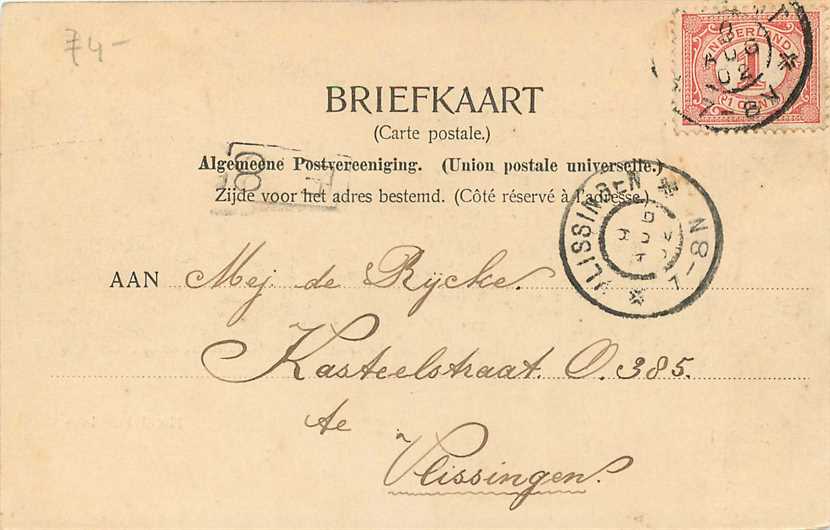 74-
NEDERLAND
1
CENT
BRIEFKAART
(Carte postale.)
Algemeene Postvereeniging. (Union postale universelle.)
Zijde voor het adres bestemd. (Côté réservé à l'adresse.)
VLISSINGEN
7-8N
AUG
AAN Mej. de Rijcke.
Kasteelstraat. O. 385.
te
Vlissingen.